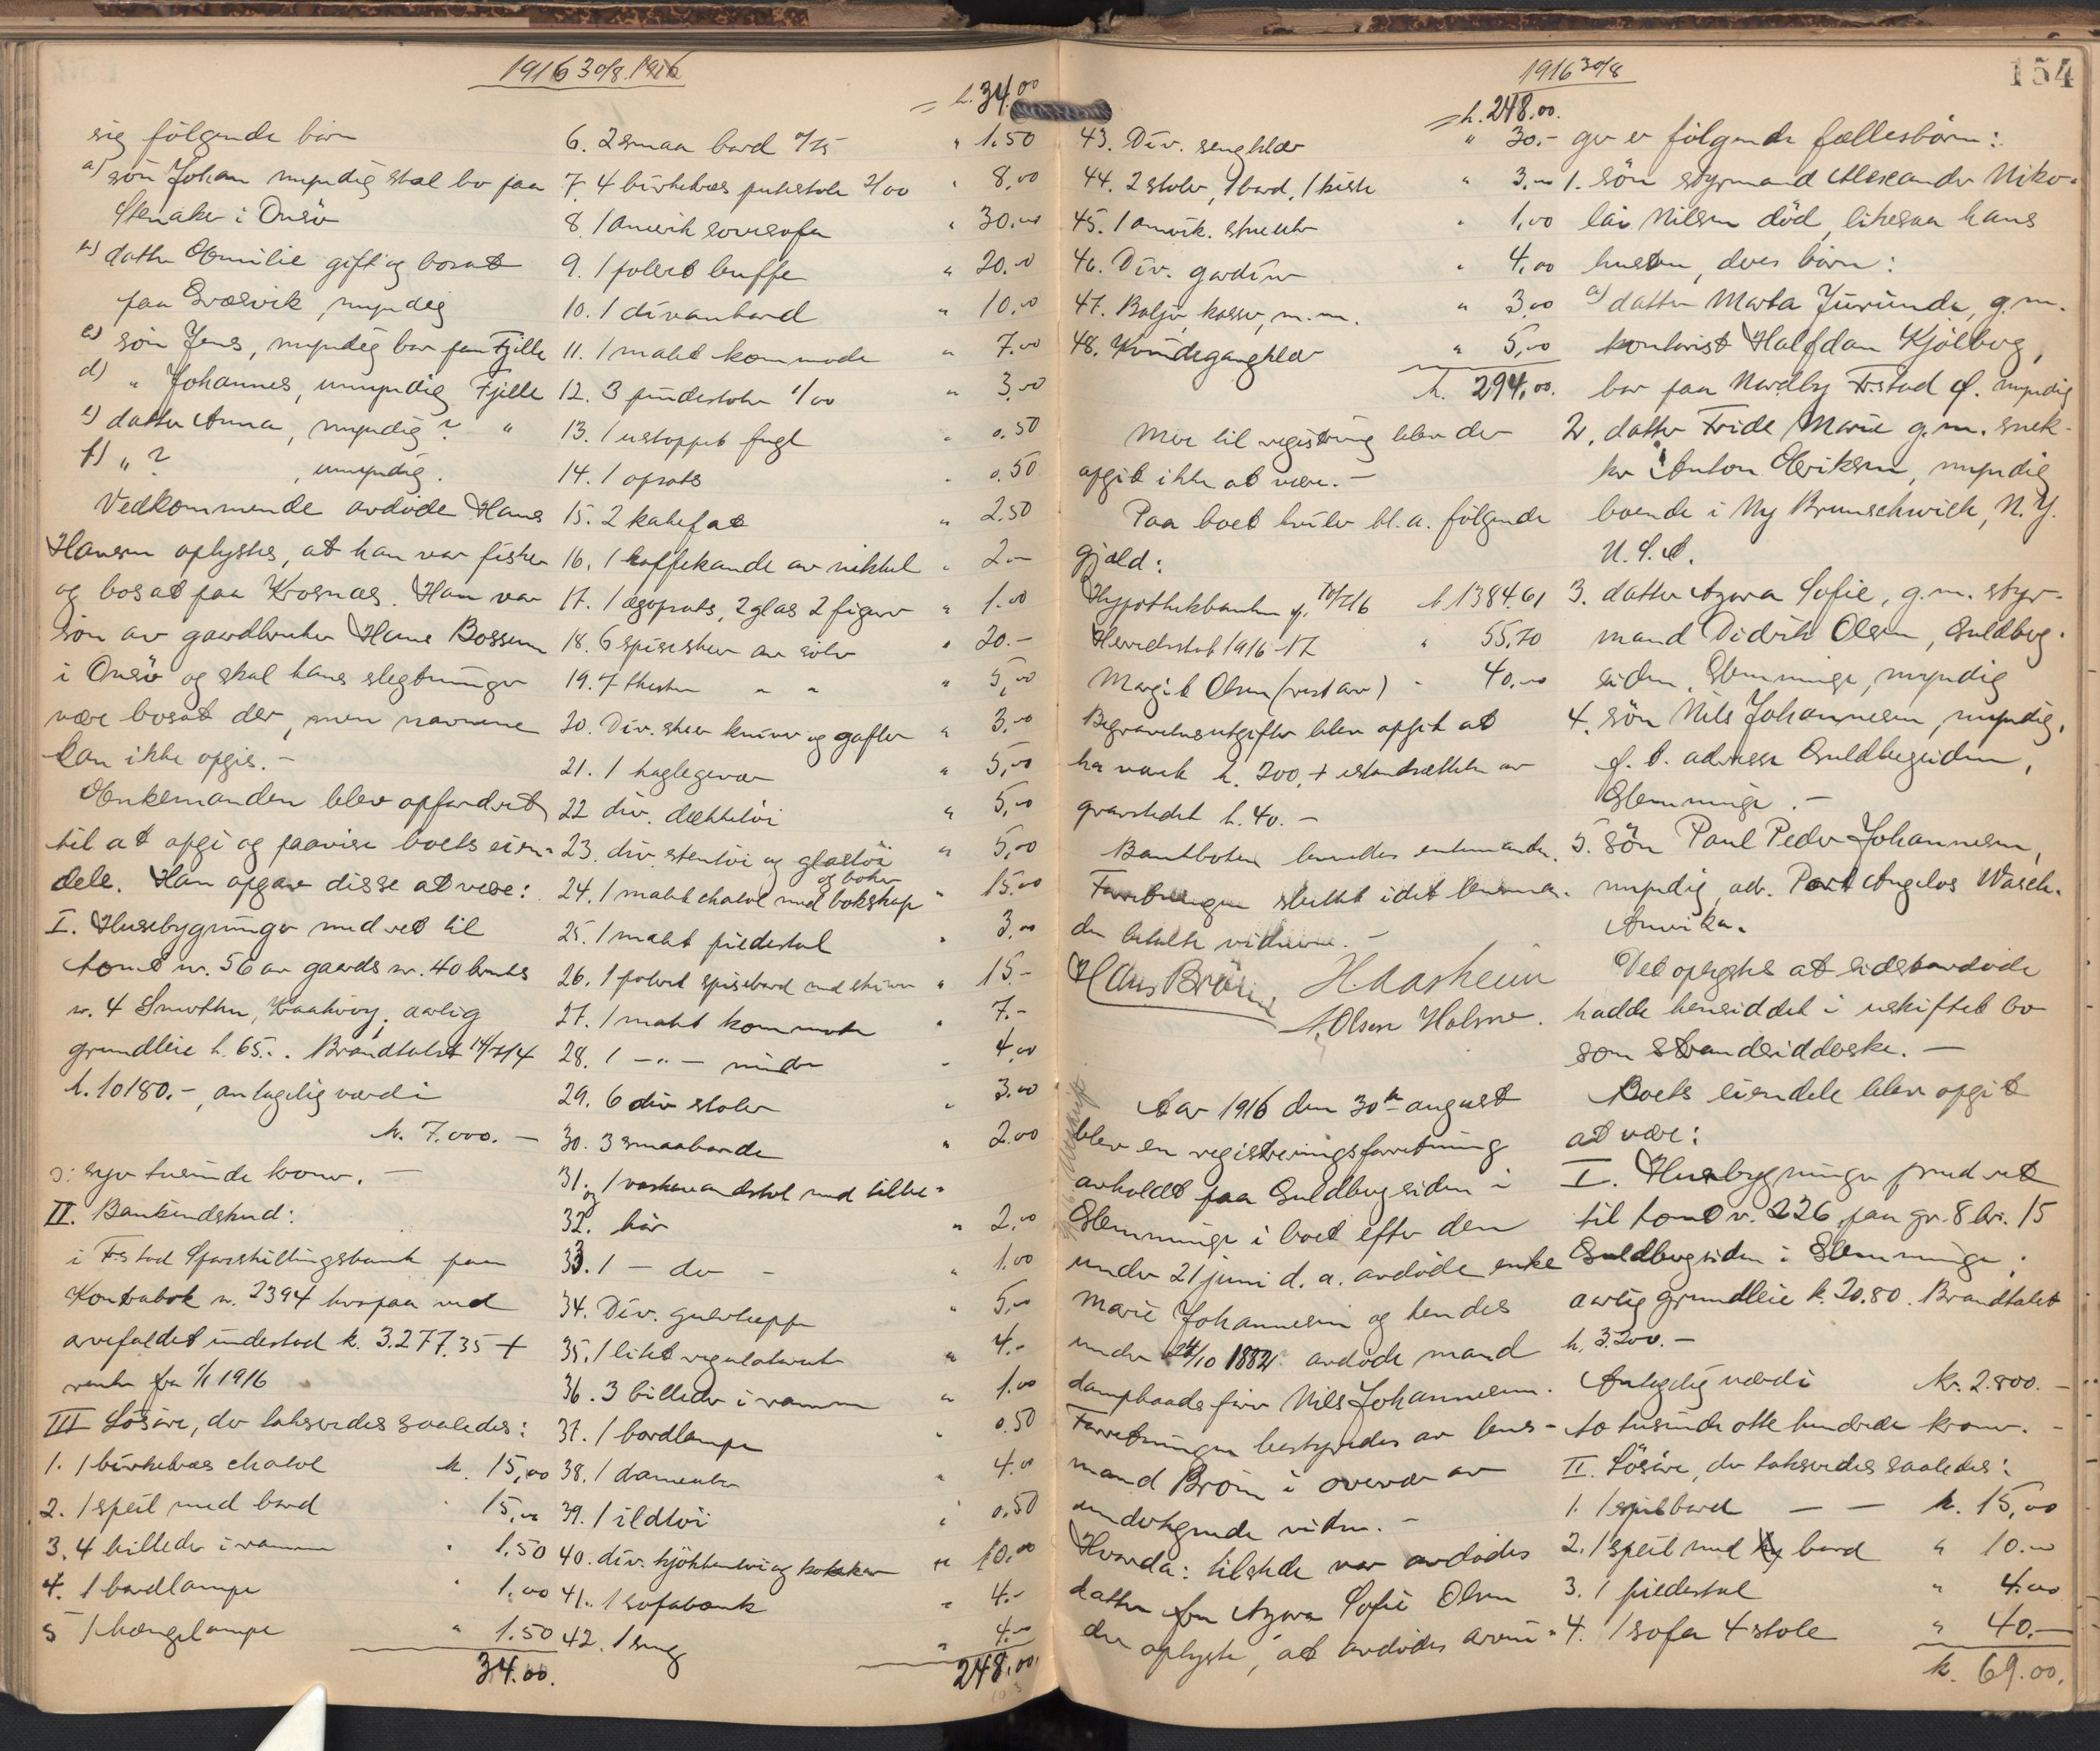 1916 30/8 1916
sig følgende børn
a) søn Johan myndig skal bo paa
Stenaker i Onsø
b) datter Emilie gift og bosat
paa Græsvik, myndig
c) søn Jens, myndig bor paa Fjelle
d) " Johannes, umyndig Fjelle
e) datter Anna, myndig? "
f) " ? , umyndig.
Vedkommende avdøde Hans
Hansen oplystes, at han var fisker
og bosat paa Krosnæs. Han var
søn av gaardbruker Hans Bossum
i Onsø og skal hans slegtninger
være bosat der, men navnene
kan ikke opgis. -
Enkemanden blev opfordret
til at opgi og paavise boets eien-
dele. Han opgav disse at være:
I. Husebygninger med ret til
tomt nr. 56 av gaards nr. 40 bruks
nr. 4 Smerthu, Kraakerøy; aarlig
grundleie k. 65.-. Brandtakst 14/7 14
k. 10180.-, antagelig værdi
k. 7.000. -
ɔ: syv tusinde kroner. -
II. Bankindskud:
i Fr.stad Sparskillingsbank paa
Kontrabok nr. 2394 hvorpaa ved
arvefaldet indestod k. 3.277.35 +
renter fra 1/1 1916
III Løsøre, der taksertes saaledes:
1. 1 birketræs chatol k. 15,00
2. 1 speil med bord " 15,00
3. 4 billeder i ramme " 1.50
4. 1 bordlampe " 1.00
5 1 hængelampe " 1.50
34.00.
= k. 34.00
6. 2 smaa bord 0/75 " 1.50
7. 4 birketræs pukstole 2/00 " 8,00
8. 1 amerik sovesofa " 30.00
9. 1 polert buffe " 20.00
10. 1 divanbord " 10,00
11. 1 malet kommode " 7.00
12. 3 pindestoler 1/00 " 3,00
13. 1 ustoppet fugl " 0.50
14. 1 opsats " 0.50
15. 2 kakefat " 2.50
16. 1 kaffekande av nikkel " 2.-
17. 1 ægopsats, 2 glas 2 figurer " 1.00
18. 6 spiseskeer av sølv " 20.-
19. 7 theskeer " " " 5,00
20. Div. skeer kniver og gafler " 3.00
21. 1 haglegevær " 5,00
22 div. dækketøi " 5,00
23. div. stentøi og glastøi " 5,00
24. 1 malet chatol med bokskap og bøker " 15.00
25. 1 malet piedestal " 3,00
26. 1 polert spisebord med skiver " 15.-
27. 1 malet kommode " 7.-
28. 1 -"- mindre " 4,00
29. 6 div stoler " 3.00
30. 3 smaaborde " 2.00
31. 1 vaskevandstol med tilbe-
og
32. hør " 2,00
33. 1 - do - " 1.00
34. Div. gulvtæpper " 5,00
35. 1 litet regulatorur " 4.-
36. 3 billeder i ramme " 1.00
37. 1 bordlampe " 0.50
38. 1 dameur " 4.00
39. 1 ildtøi " 0.50
40. div. kjøkkentøi og kokekar " 10.00
41. 1 sofabænk " 4.-
42. 1 seng " 4.00
248.00.
1916 30/8
154
= k. 248.00.
43. Div. sengklær " 30.-
44. 2 stoler, 1 bord, 1 kiste " 3,00
45. 1 amrik. stueur " 1,00
46. Div. gardiner " 4,00
47. Baljer, kasser, m.m. " 3,00
48. Kvindegangklær " 5,00
k. 294,00.
Mer til registrering blev der
opgit ikke at være. -
Paa boet hviler bl.a. følgende
gjæld:
Hypothekbanken pr. 10/7 16 k 1384.61
Herredsskat 1916-17 " 55,70
Margit Olsen (rest arv) " 40,00
Begravelsesutgifter blev opgit at
ha været k. 200, + istandsættelse av
gravstedet k. 40. -
Bautboten
Forretningen sluttet idet lensman-
den betalte vidnene. -
Hans Brøin H. Aasheim
A. Olsen Holme.
Aar 1916 den 30te august
blev en registreringsforretning
avholdt paa Guldbergsiden i
Glemminge i boet efter den
under 21 juni d.a. avdøde enke
Marie Johannesen og hendes
under 24/10 1882 avdøde mand
dampbaadsfører Nils Johannesen.
Forretningen bestyredes av lens-
mand Brøin i overvær av
undertegnede vidner. -
Hvorda: tilstede var avdødes
datter fru Azora Sofie Olsen
der oplyste, at avdødes arvin-
ger er følgende fællesbørn:
1. søn styrmand Alexander Niko-
lai Nilsen død, likesaa hans
hustru, deres børn:
a) datter Marta Jurunda, g.m.
kontorist Halfdan Kjølberg,
bor paa Nordby Fr.stad p. myndig
2. datter Fride Marie g.m. snek-
ker Anton Eriksen, myndig
boende i Ny Brunschwich, N.Y.
U.S.A.
3. datter Azora Sofie, g.m. styr-
mand Didrik Olsen, Guldberg-
siden, Glemminge, myndig
4. søn Nils Johannesen, myndig,
p. t. adresse Guldbergsiden,
Glemminge. -
5. søn Paul Peder Johannesen,
myndig, adr. Port Angelos Wasch.
Amerika.
Det oplystes at sidstavdøde
hadde hensiddet i uskiftet bo
som strandsidderske. -
Boets eiendele blev opgit
at være:
I. Husbygninger med ret
til tomt nr. 226 paa gr. 8 br. 15
Guldbergsiden i Glemminge;
aarlig grundleie k. 20.80. Brandtakst
k. 3200. -
Antagelig værdi k. 2.800. -
to tusinde otte hundrede kroner. -
II. Løsøre, der taksertes saaledes:
1. 1 spilbord - - k. 15,00
2. 1 speil med bord " 10.00
3. 1 piedestal " 4.00
4. 1 sofa 4 stole " 40.-
k. 69.00.